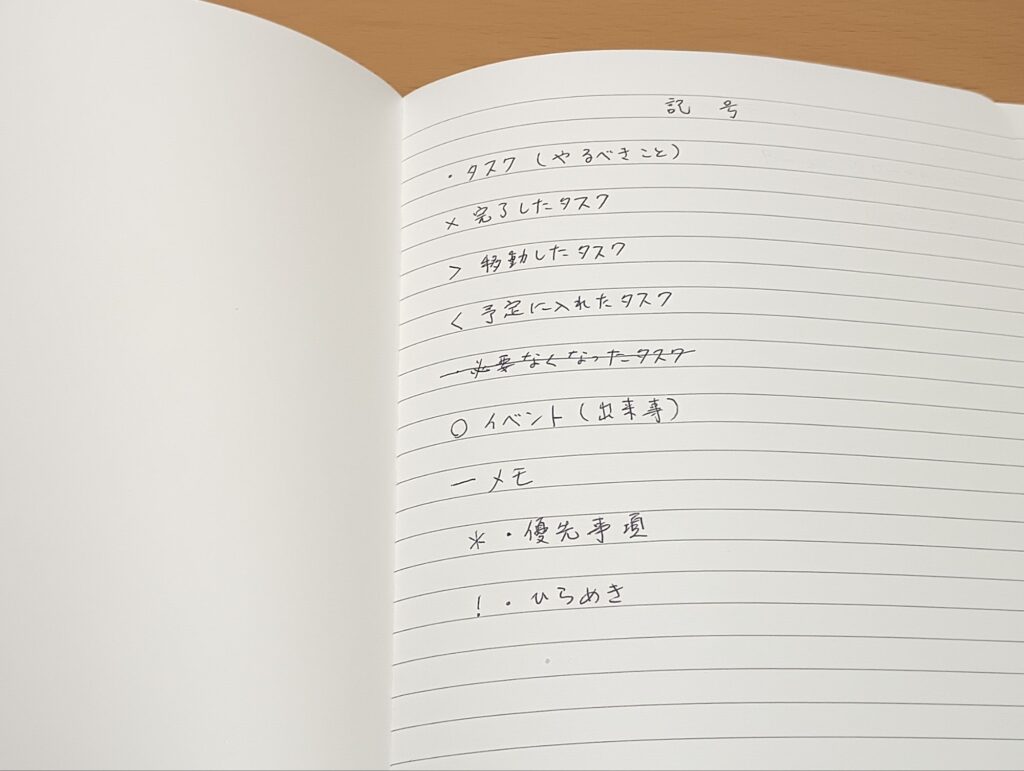 記 号
・タスク(やるべきこと)
× 完了したタスク
> 移動したタスク
< 予定に入れたタスク
・必要なくなったタスク
○ イベント(出来事)
ー メモ
* ・優先事項
! ・ひらめき